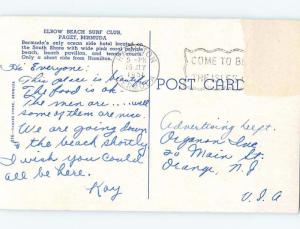 ELBOW BEACH SURF CLUB,
PAGET, BERMUDA
Bermuda's only ocean side hotel located on
the South Shore with wide pink coral private
beach, beach pavilion, and tennis courts.
Only a short ride from Hamilton.
Hi Everyone:
This place is beautiful
The food is ok.
The men are....well
some of them are nice.
We are going down
to the beach shortly
I wish you could
all be here.
Kay
5 - PM
COME TO BE
THE ISLES
POST CARD
Advertising Dept.
Organon Inc
20 Main St.
Orange, N.J
U.S.A